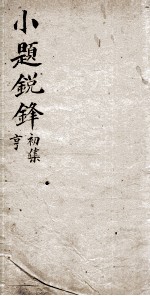 小題鋭鋒
初集
亨